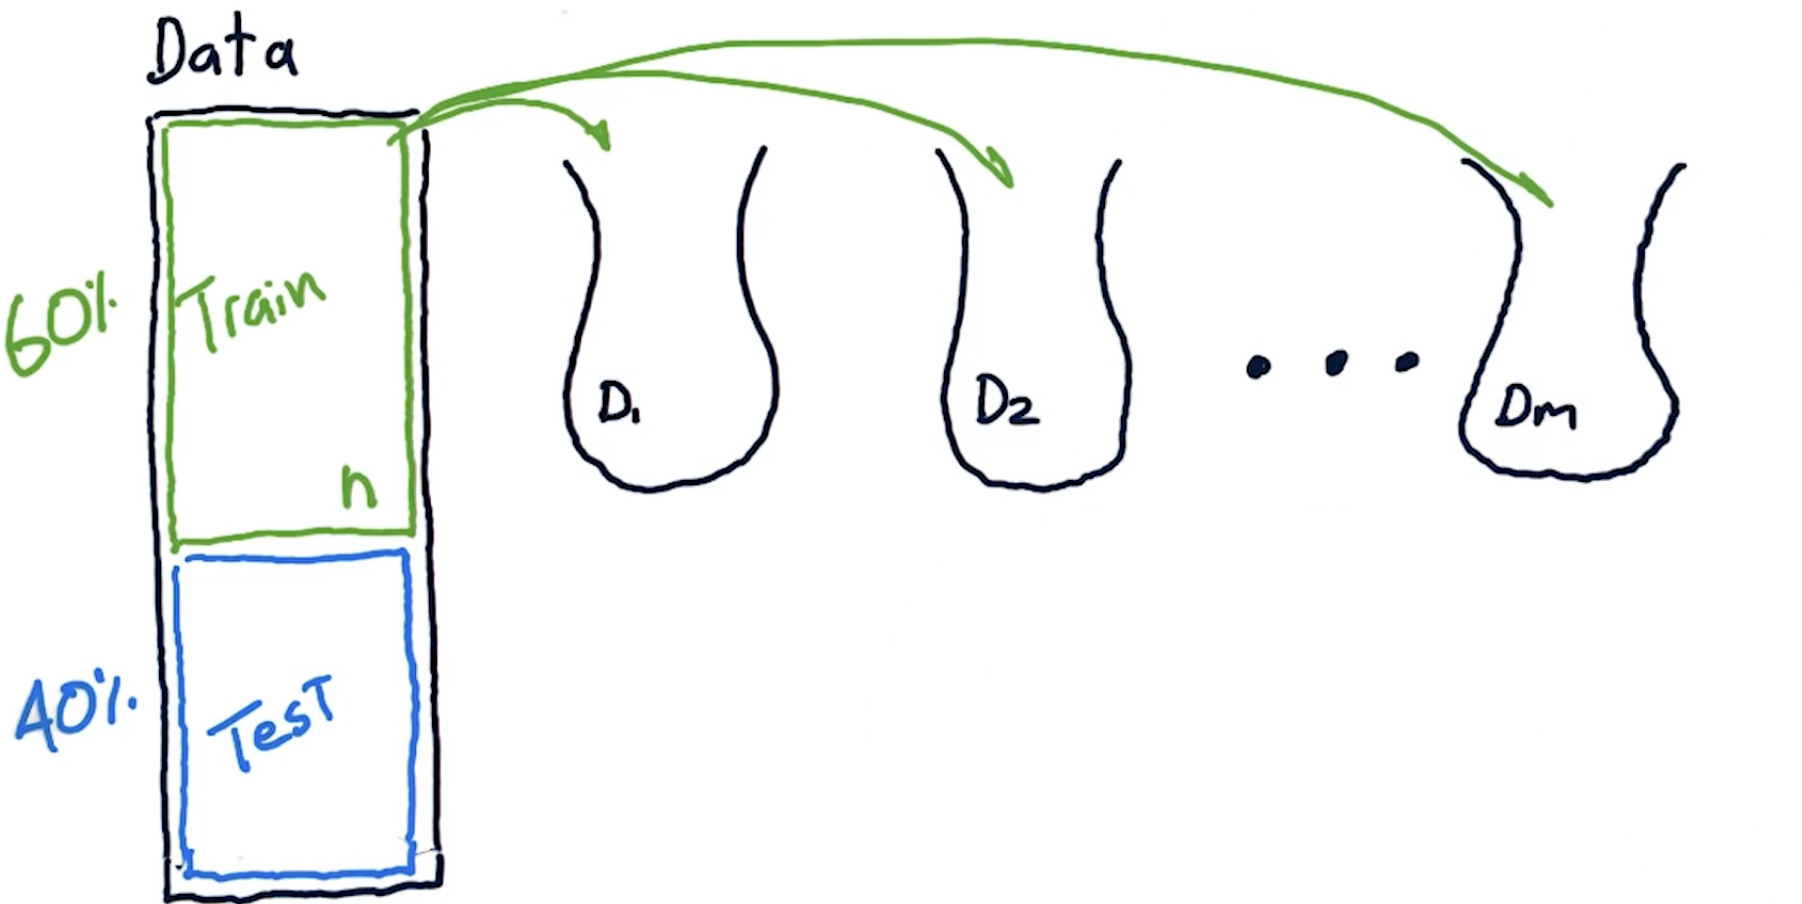 Data
60%
Train
n
40%
Test
D1
D2
Dm